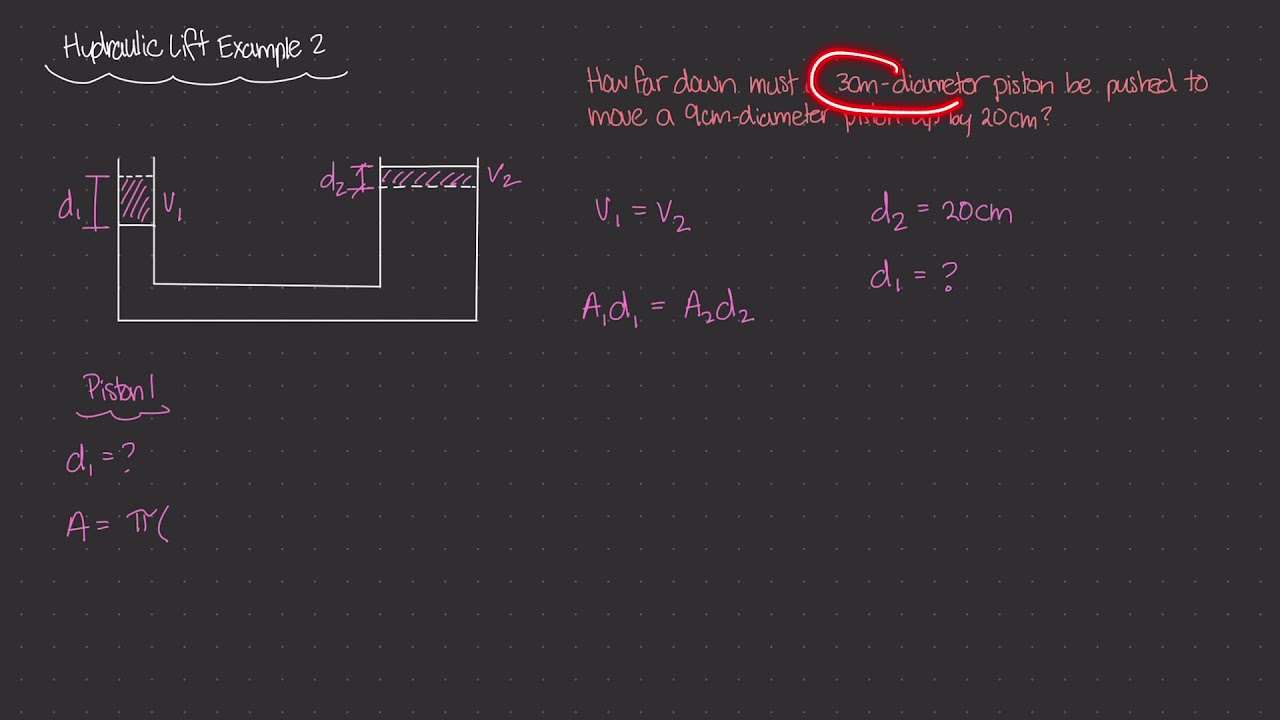 Hydraulic Lift Example 2
How far down must 3cm-diameter piston be pushed to
move a 9cm-diameter piston up by 20cm?
d₁ V₁
d₂ V₂
V₁ = V₂
d₂ = 20cm
d₁ = ?
A₁d₁ = A₂d₂
Piston 1
d₁ = ?
A = π(